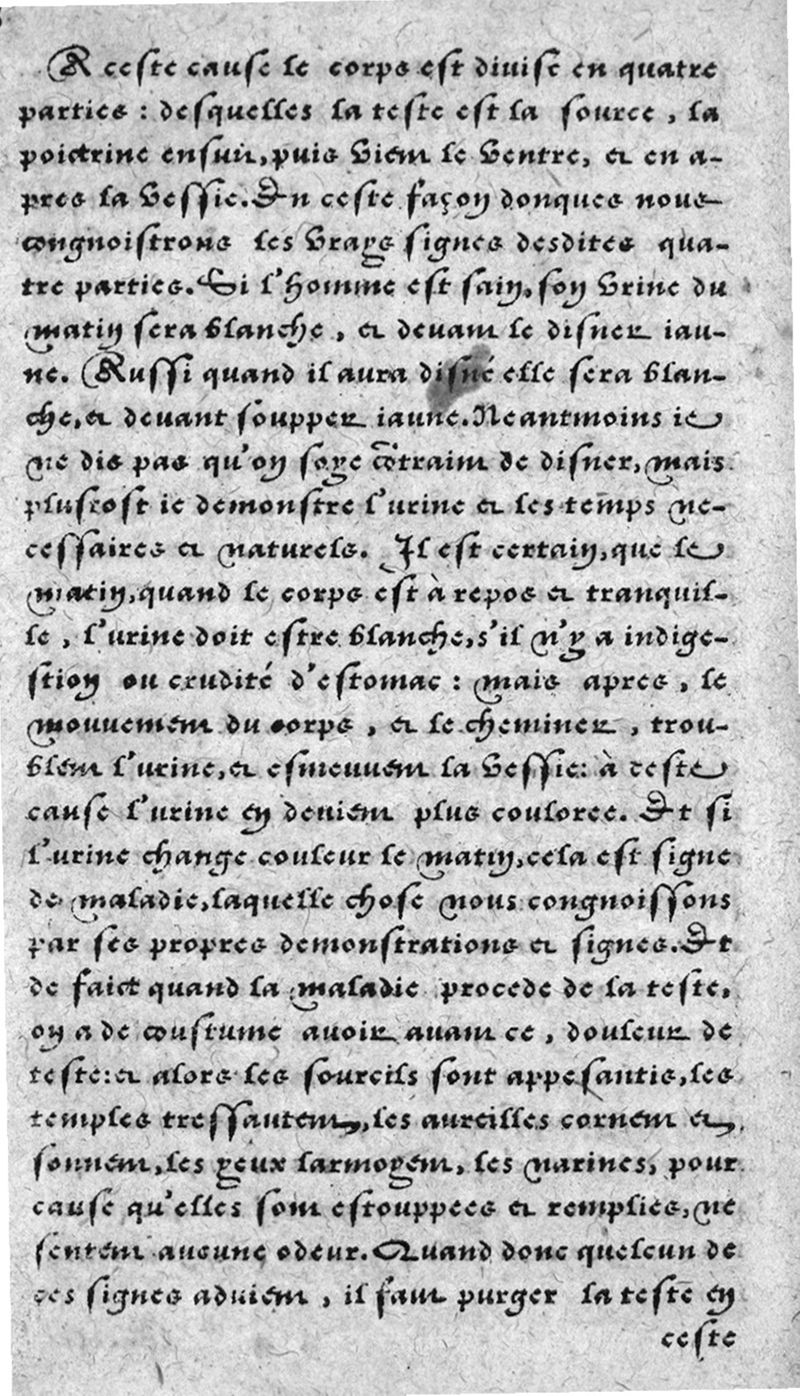 A ceste cause le corps est diuise en quatre
parties : desquelles la teste est la source, la
poictrine ensuit, puis vient le ventre, et en a-
pres la vessie. En ceste façon donques nous
congnoistrons les vrays signes desdites qua-
tre parties. Si l'homme est sain, son vrine du
matin sera blanche, et deuant le disner iau-
ne. Aussi quand il aura disné elle sera blan-
che, et deuant soupper iaune. Neantmoins ie
ne dis pas qu'on soye cõtraint de disner, mais
plustost ie demonstre l'urine et les temps ne-
cessaires et naturels. Il est certain, que le
matin, quand le corps est à repos et tranquil-
le, l'urine doit estre blanche, s'il n'y a indige-
stion ou crudité d'estomac : mais apres, le
mouuement du corps, et le cheminer, trou-
blent l'urine, et esmeuuent la vessie: à ceste
cause l'urine en deuient plus couloree. Et si
l'urine change couleur le matin, cela est signe
de maladie, laquelle chose nous congnoissons
par ses propres demonstrations et signes. Et
de faict quand la maladie procede de la teste,
on a de coustume auoir auant ce, douleur de
teste: et alors les sourcils sont appesantis, les
temples tressautent, les aureilles cornent et
sonnent, les yeux larmoyent, les narines, pour
cause qu'elles sont estouppees et remplies, ne
sentent aucune odeur. Quand donc quelcun de
ces signes aduient, il faut purger la teste en
ceste